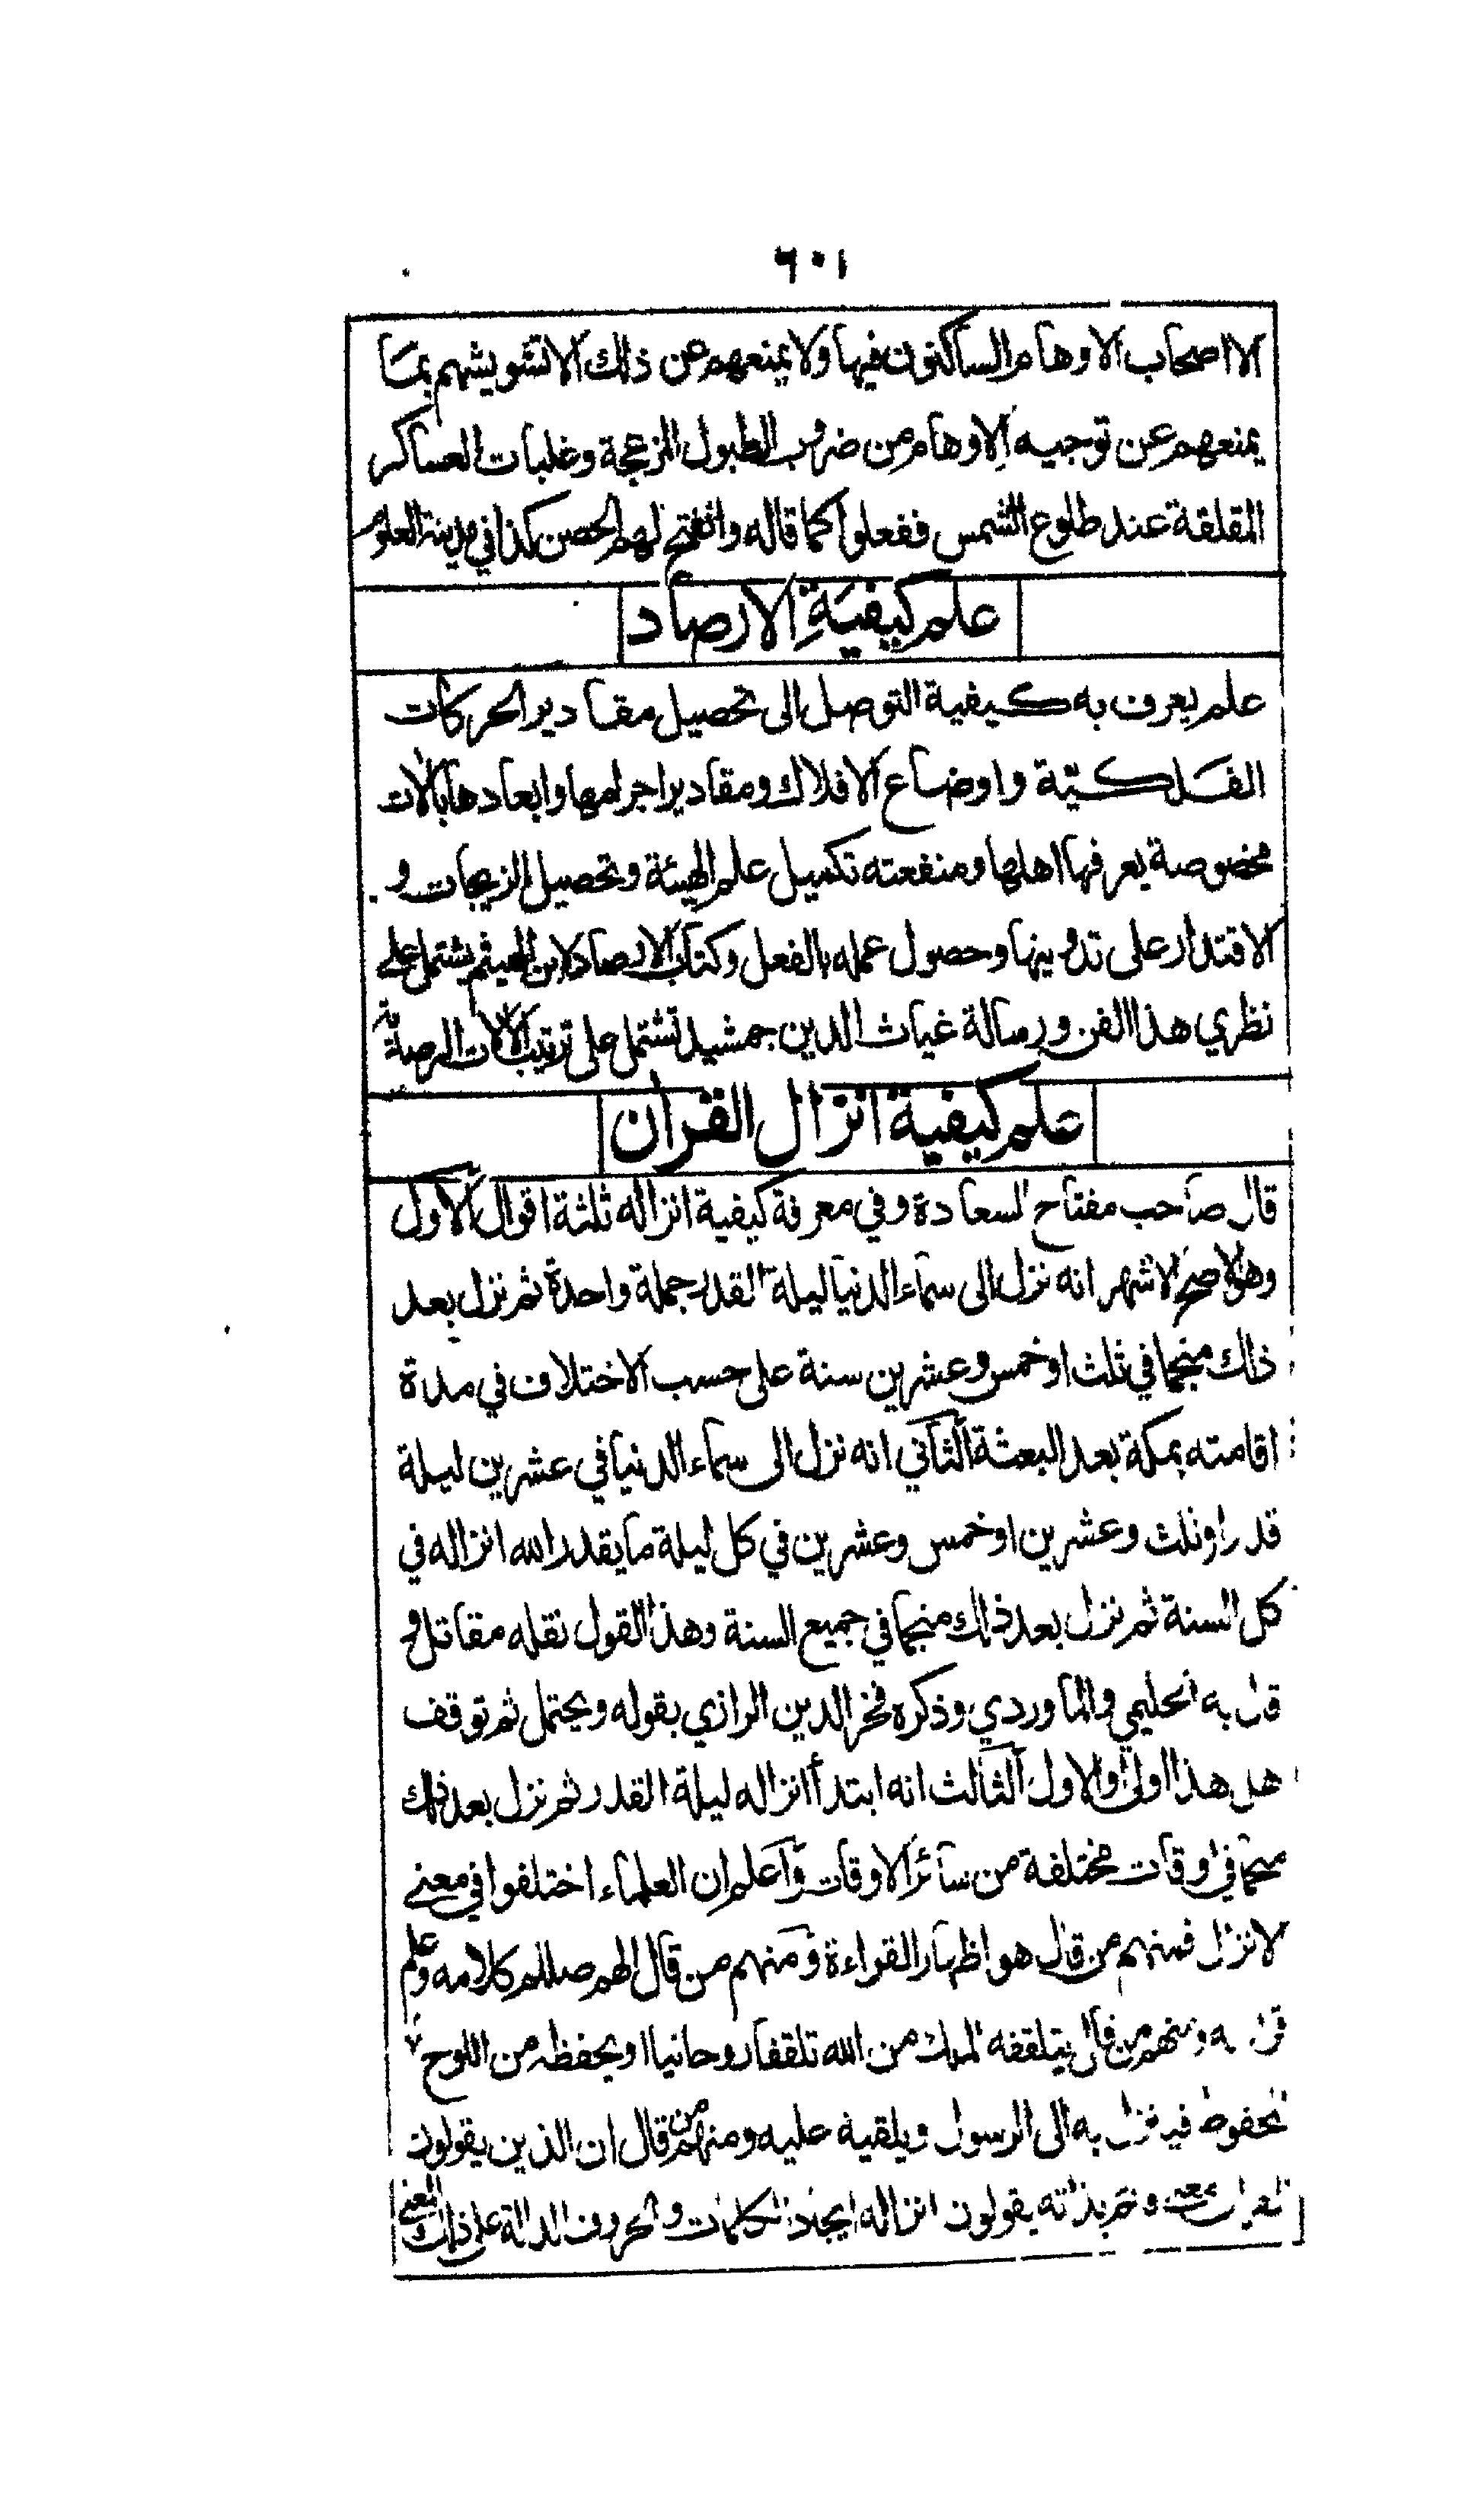 ٦٠١
الا اصحاب الاوهام الساكنون فيها ولا يمنعهم عن ذلك الا تشويشهم بما
يمنعهم عن توجيه الاوهام من ضرب الطبول المزعجة وغلبات العساكر
المقلقة عند طلوع الشمس ففعلوا كما قاله وانفتح لهم الحصن كذا في مدينة العلوم
علم كيفية الارصاد
علم يعرف به كيفية التوصل الى تحصيل مقادير الحركات
الفلكيّة واوضاع الافلاك ومقادير اجرامها وابعادها بالآت
مخصوصة يعرفها اهلها ومنفعته تكميل علم الهيئة وتحصيل الزيجات و
الاقتدار على تدوينها وحصول عمله بالفعل وكتاب الارصاد لابن الهيثم يشتمل على
نظري هذا الفن ورسالة غياث الدين جمشيد تشتمل على ترتيب الآلات الرصدية
علم كيفية انزال القران
قال صاحب مفتاح السعادة وفي معرفة كيفية انزاله ثلثة اقوال الاول
وهو الاصح الاشهر انه نزل الى سماء الدنيا ليلة القدر جملة واحدة ثم نزل بعد
ذلك منجما في ثلث او خمس وعشرين سنة على حسب الاختلاف في مدة
اقامته بمكة بعد البعثة الثاني انه نزل الى سماء الدنيا في عشرين ليلة
قدر او ثلث وعشرين او خمس وعشرين في كل ليلة ما يقدر الله انزاله في
كل السنة ثم نزل بعد ذلك منجما في جميع السنة وهذا القول نقله مقاتل و
قال به الحليمي والماوردي وذكره فخر الدين الرازي بقوله ويحتمل ثم توقف
هل هذا اولى او الاول الثالث انه ابتدأ انزاله ليلة القدر ثم نزل بعد ذلك
منجما في اوقات مختلفة من سائر الاوقات واعلم ان العلماء اختلفوا في معنى
الانزال فمنهم من قال هو اظهار القراءة ومنهم من قال الهم صللم كلامه وعلم
ومنهم من قال يتلقفه الملك من الله تلقفا روحانيا او يحفظه من اللوح
المحفوظ فينزل به الى الرسول ويلقيه عليه ومنهم من قال ان الذين يقولون
القران معنى قائم بذاته يقولون انزاله ايجاد الكلمات والحروف الدالة على ذلك المعنى